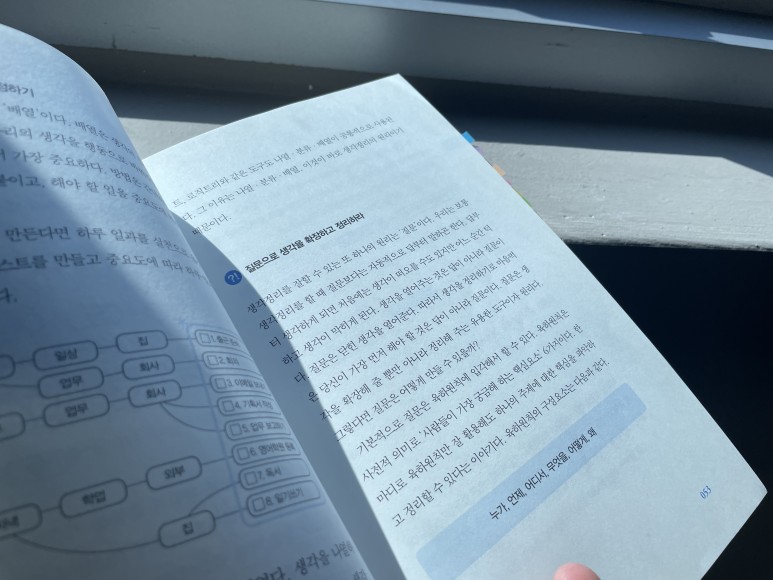 정하기
'배열'이다. 배열은
의 생각을 행동으로
가장 중요하다. 방법은
이고, 해야 할 일을 중요
만든다면 하루 일과를
스트를 만들고 중요도에 따라
다.
일상
집
업무
회사
업무
회사
학업
외부
집
2. 회의
5. 업무 보고
7. 독서
8. 일기쓰기
생각을
트, 로직트리와 같은 도구도 나열·분류·배열이 공통적으로 사용된
다. 그 이유는 나열·분류·배열, 이것이 바로 생각정리의 원리이기
때문이다.
?! 질문으로 생각을 확장하고 정리하라
생각정리를 잘할 수 있는 또 하나의 원리는 '질문'이다. 우리는 보통
생각정리를 할 때 질문보다는 자동적으로 답부터 말하곤 한다. 답부
터 생각하게 되면 처음에는 생각이 떠오를 수도 있지만 어느 순간 턱
하고 생각이 막히게 된다. 생각을 열어주는 것은 답이 아니라 질문이
다. 질문은 닫힌 생각을 열어준다. 따라서 생각을 정리하기로 마음먹
은 당신이 가장 먼저 해야 할 것은 답이 아니라 질문이다. 질문은 생
각을 확장해 줄 뿐만 아니라 정리해 주는 유용한 도구이자 원리다.
그렇다면 질문은 어떻게 만들 수 있을까?
기본적으로 질문은 육하원칙에 입각해서 할 수 있다. 육하원칙은
사전적 의미로 '사람들이 가장 궁금해 하는 핵심요소' 6가지이다. 한
마디로 육하원칙만 잘 활용해도 하나의 주제에 대한 핵심을 파악하
고 정리할 수 있다는 이야기다. 육하원칙의 구성요소는 다음과 같다.
누가, 언제, 어디서, 무엇을, 어떻게, 왜
053